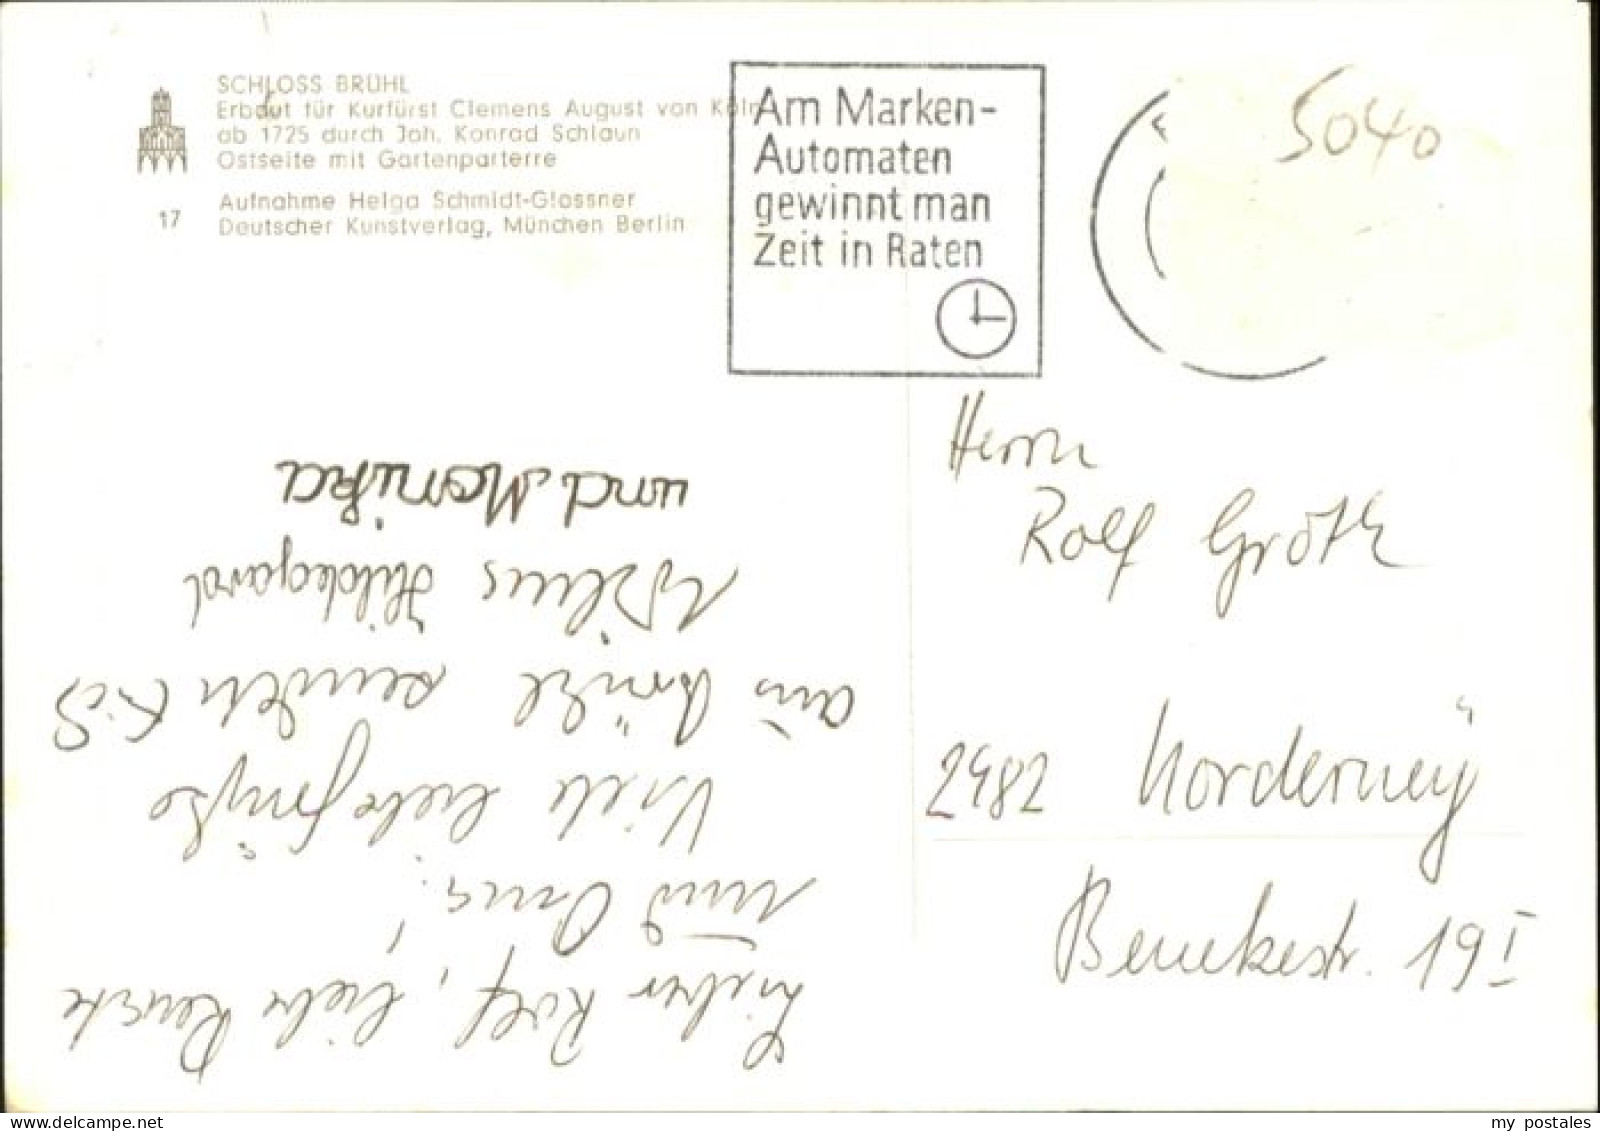 SCHLOSS BRÜHL
Erbaut für Kurfürst Clemens August von Köln
ab 1725 durch Joh. Konrad Schlaun
Ostseite mit Gartenparterre
Aufnahme Helga Schmidt-Glassner
17 Deutscher Kunstverlag, München Berlin
Am Marken-
Automaten
gewinnt man
Zeit in Raten
5040
Herrn
Rolf Gröth
2982 Norderney
Benekestr. 19 I
Lieber Rolf, liebe Renate
und Omi!
Viele liebe Grüße
aus Brühl senden
Hildegard
und Monika
my postales